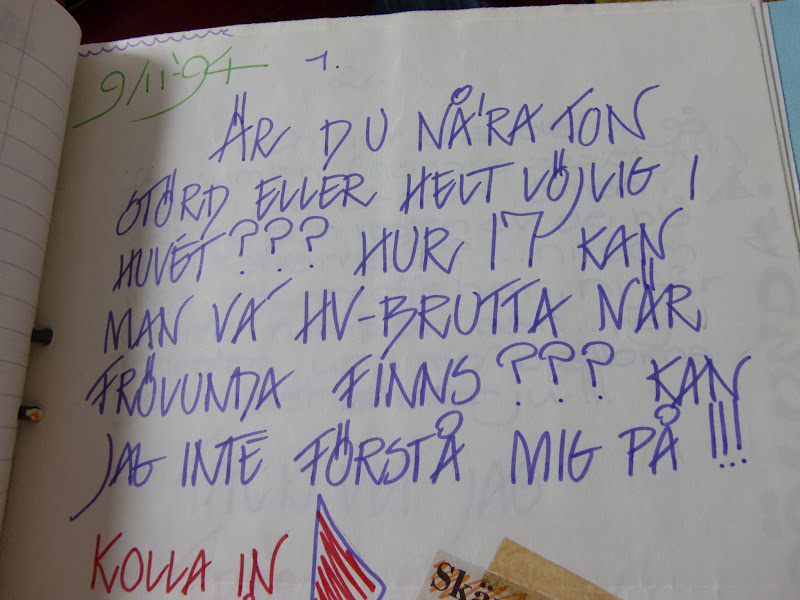 9/11-94 1.
ÄR DU NÅ'RA TON
STÖRD ELLER HELT LÖJLIG I
HUVET??? HUR 17 KAN
MAN VA' HV-BRUTTA NÄR
FRÖLUNDA FINNS??? KAN
JAG INTE FÖRSTÅ MIG PÅ!!!
KOLLA IN